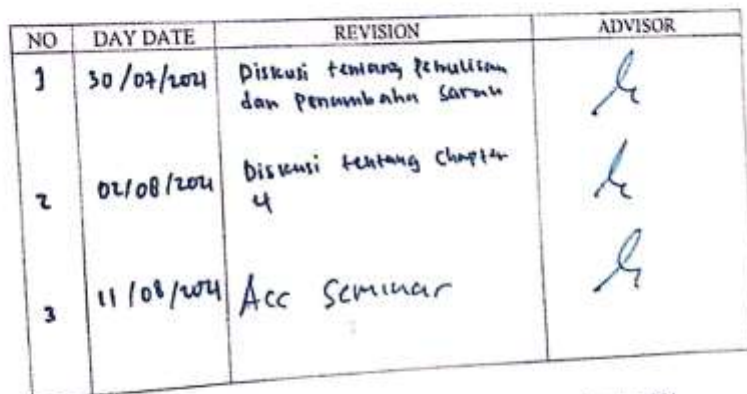 NO DAY DATE REVISION ADVISOR
1 30/07/2021 Diskusi tentang Penulisan
dan Penambahan Saran
2 02/08/2021 Diskusi tentang Chapter
4
3 11/08/2021 Acc Seminar